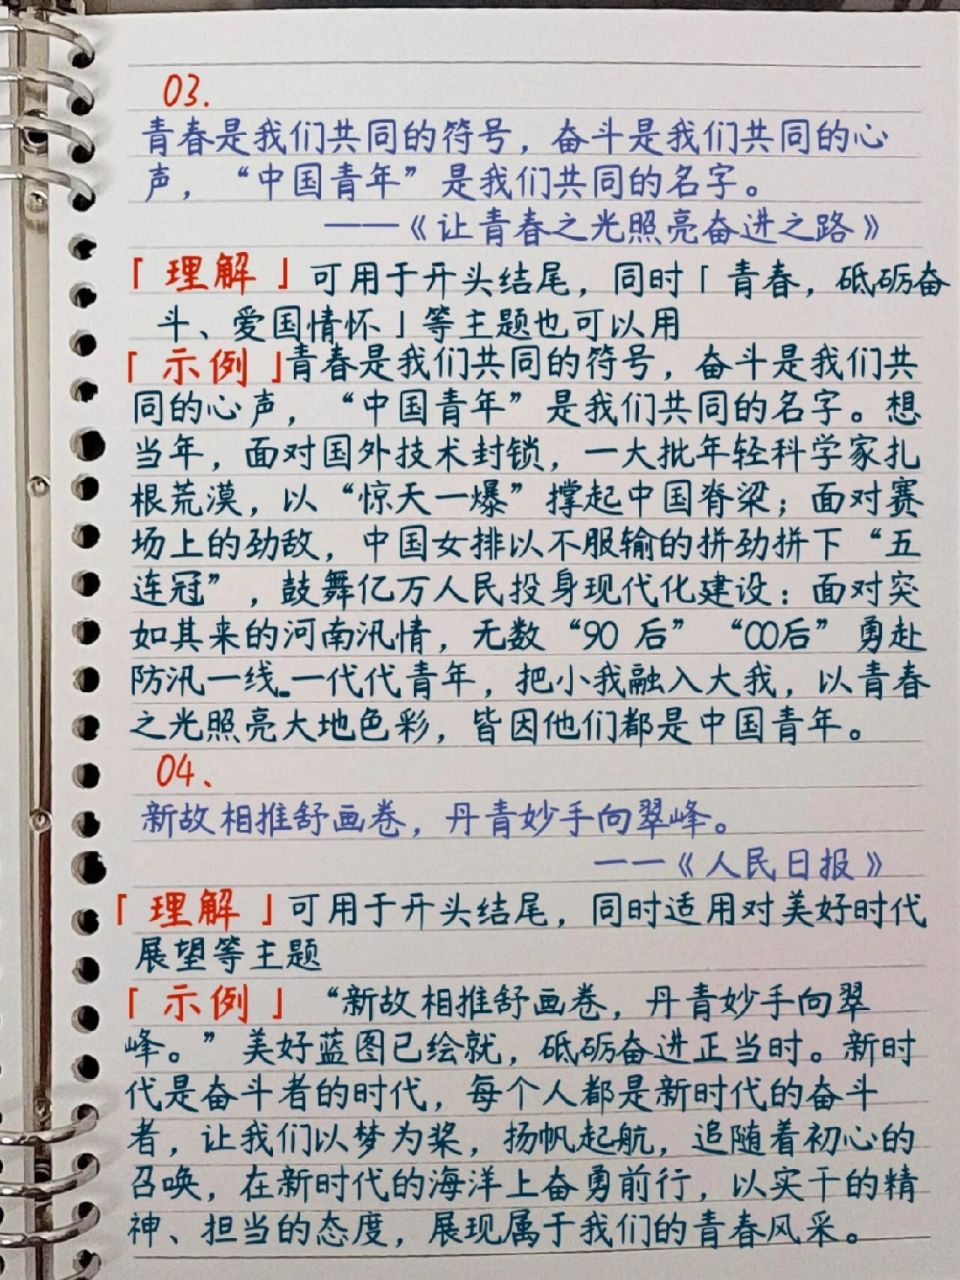 03.
青春是我们共同的符号，奋斗是我们共同的心
声，“中国青年”是我们共同的名字。
——《让青春之光照亮奋进之路》
「理解」可用于开头结尾，同时「青春，砥砺奋
斗、爱国情怀」等主题也可以用
「示例」青春是我们共同的符号，奋斗是我们共
同的心声，“中国青年”是我们共同的名字。想
当年，面对国外技术封锁，一大批年轻科学家扎
根荒漠，以“惊天一爆”撑起中国脊梁；面对赛
场上的劲敌，中国女排以不服输的拼劲拼下“五
连冠”，鼓舞亿万人民投身现代化建设：面对突
如其来的河南汛情，无数“90后”“00后”勇赴
防汛一线……一代代青年，把小我融入大我，以青春
之光照亮大地色彩，皆因他们都是中国青年。
04、
新故相推舒画卷，丹青妙手向翠峰。
——《人民日报》
「理解」可用于开头结尾，同时适用对美好时代
展望等主题
「示例」“新故相推舒画卷，丹青妙手向翠
峰。”美好蓝图已绘就，砥砺奋进正当时。新时
代是奋斗者的时代，每个人都是新时代的奋斗
者，让我们以梦为桨，扬帆起航，追随着初心的
召唤，在新时代的海洋上奋勇前行，以实干的精
神、担当的态度，展现属于我们的青春风采。